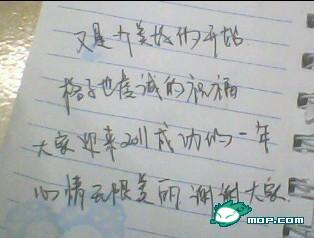 又是个美好的开始
格子也虔诚的祝福
大家迎来2011成功的一年
心情无限美丽 谢谢大家
MOP.COM